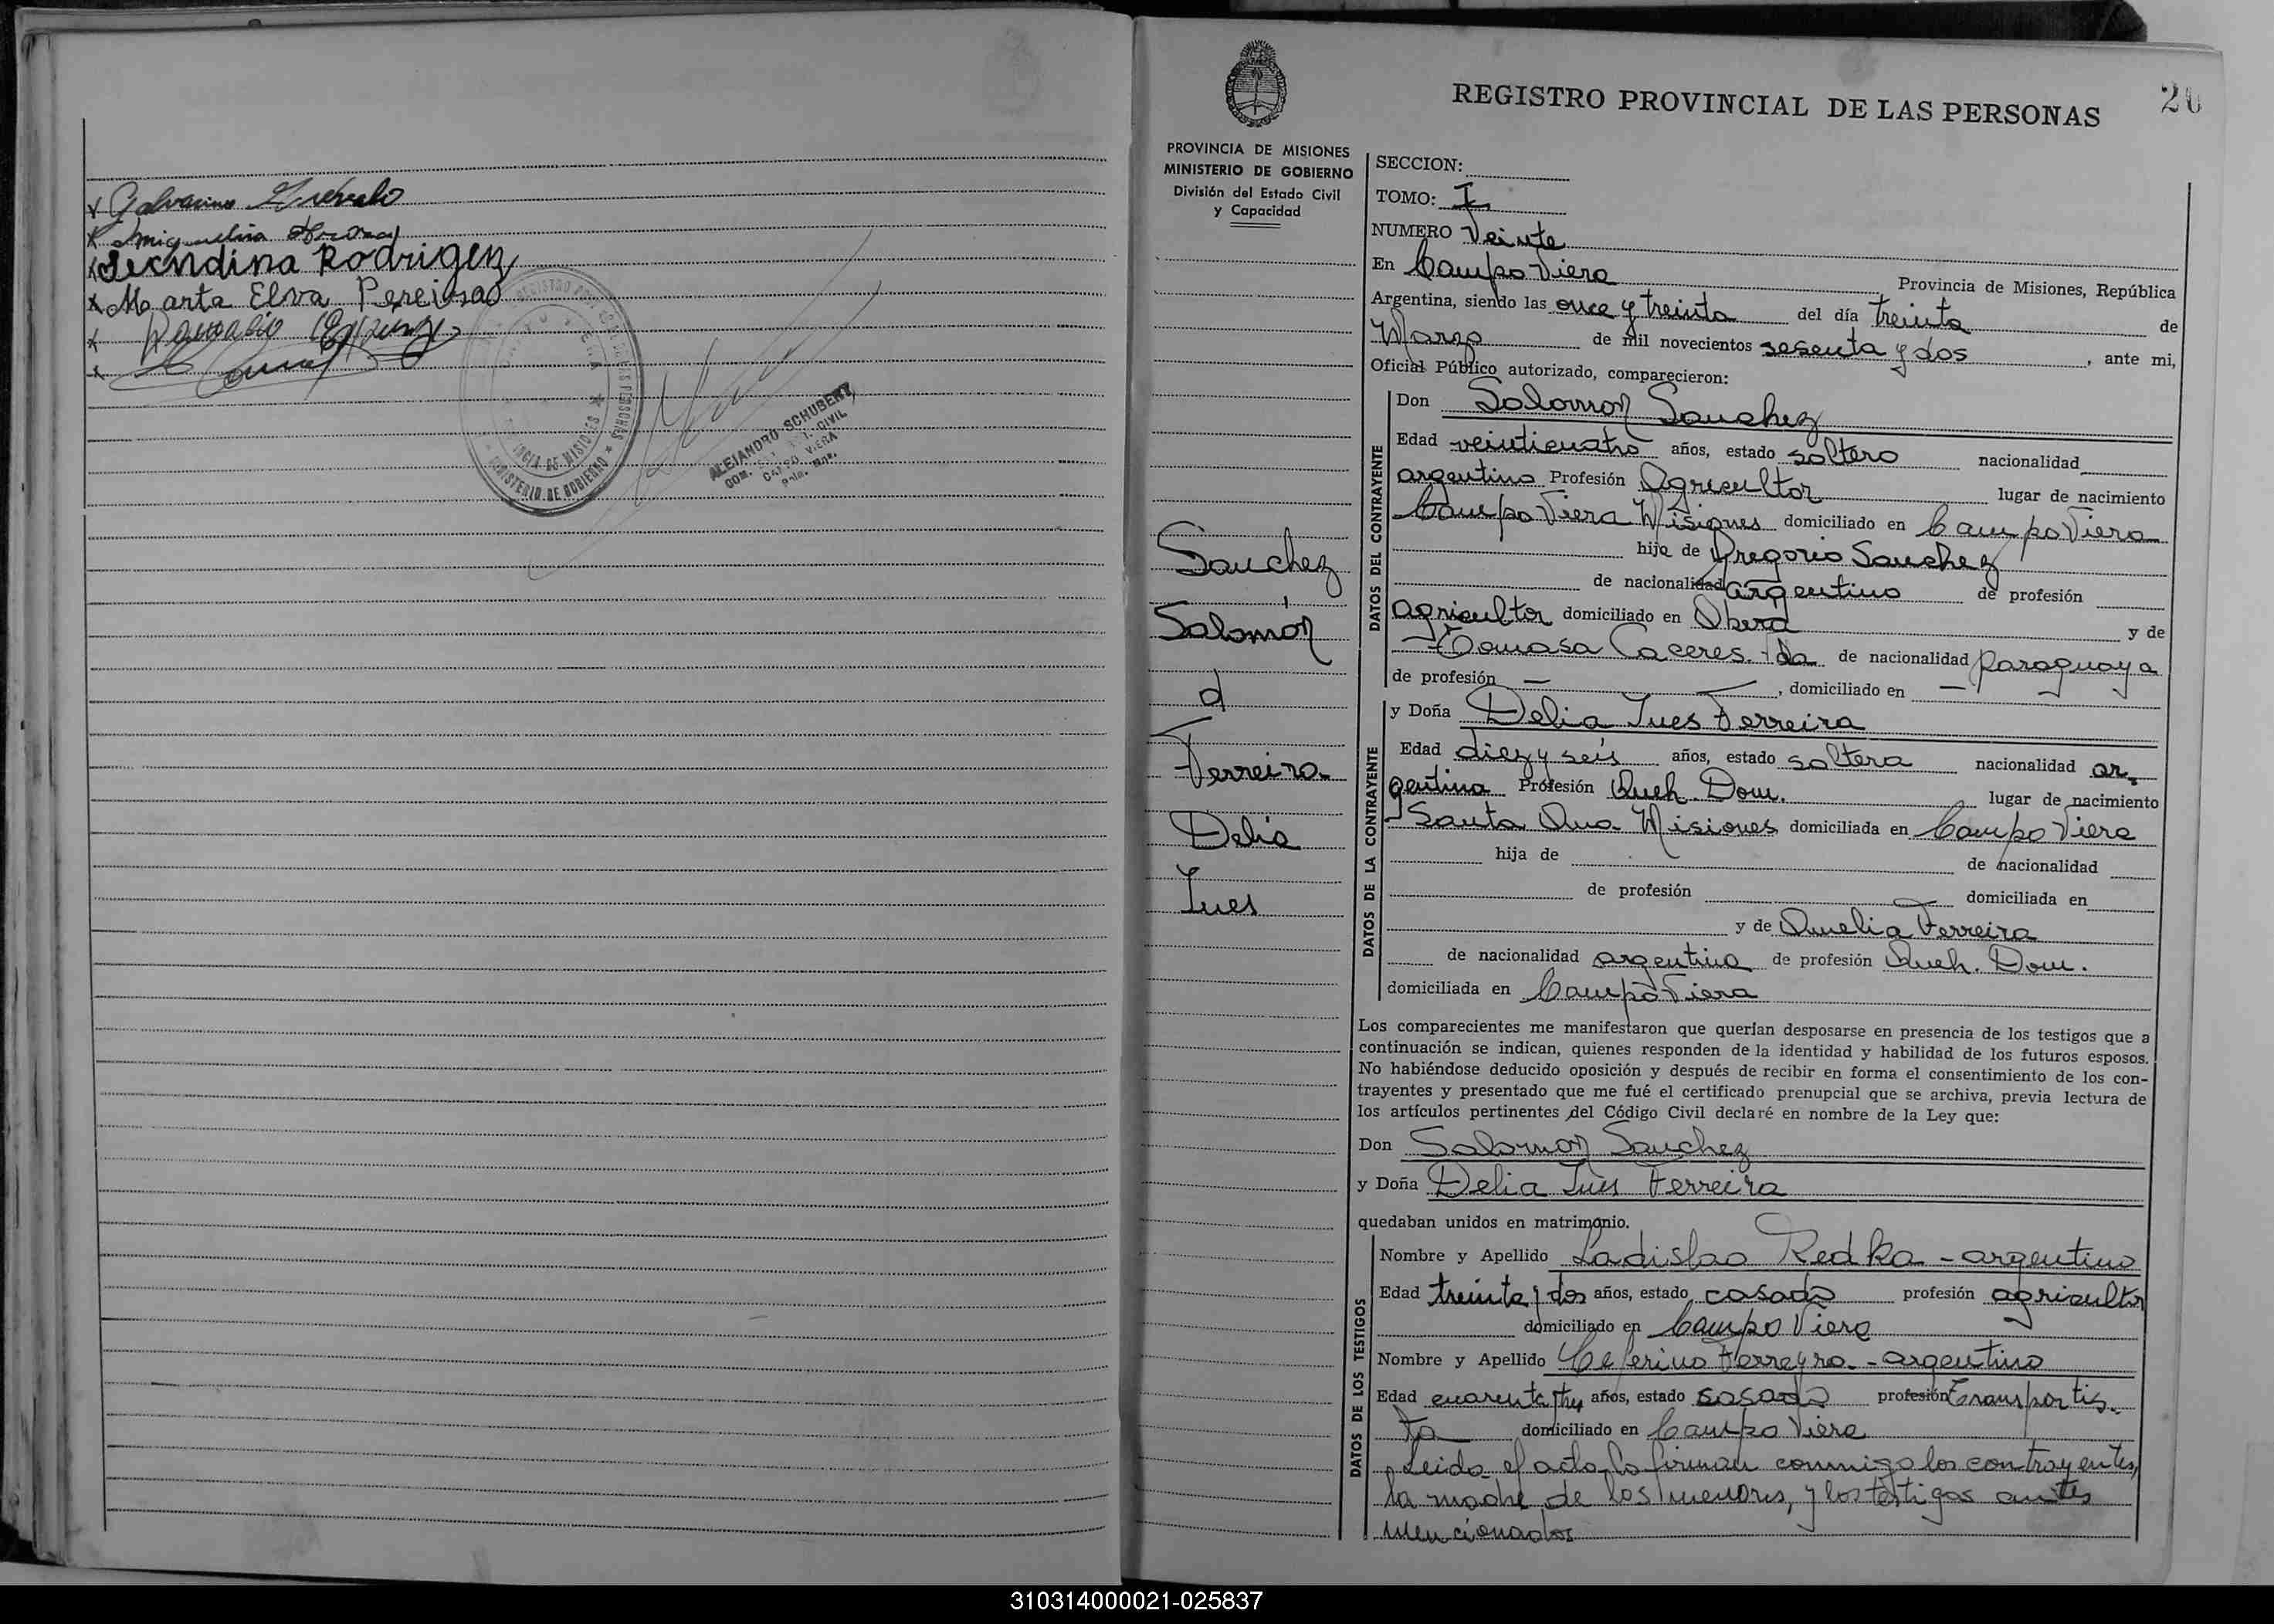 Galvarino
Miguelina
Secndina Rodriguez
Marta Elva Pereira
ALEJANDRO SCHUBERT
CAMPO VIERA
20
REGISTRO PROVINCIAL DE LAS PERSONAS
PROVINCIA DE MISIONES
MINISTERIO DE GOBIERNO
División del Estado Civil
y Capacidad
Sanchez
Salomón
d
Ferreira
Delia
Ines
SECCION:
TOMO: I
NUMERO Veinte
En Campo Viera Provincia de Misiones, República
Argentina, siendo las once y treinta del día treinta de
Marzo de mil novecientos sesenta y dos, ante mi,
Oficial Público autorizado, comparecieron:
DATOS DEL CONTRAYENTE
Don Salomon Sanchez
Edad veinticuatro años, estado soltero nacionalidad
argentino Profesión Agricultor lugar de nacimiento
Campo Viera Misiones domiciliado en Campo Viera
hijo de Gregorio Sanchez
de nacionalidad argentino de profesión
agricultor domiciliado en Obera y de
Tomasa Caceres de nacionalidad paraguaya
de profesión — , domiciliado en —
DATOS DE LA CONTRAYENTE
y Doña Delia Ines Ferreira
Edad diez y seis años, estado soltera nacionalidad ar-
gentina Profesión Queh. Dom. lugar de nacimiento
Santa Ana Misiones domiciliada en Campo Viera
hija de de nacionalidad
de profesión domiciliada en
y de Amelia Ferreira
de nacionalidad argentina de profesión Queh. Dom.
domiciliada en Campo Viera
Los comparecientes me manifestaron que querían desposarse en presencia de los testigos que a
continuación se indican, quienes responden de la identidad y habilidad de los futuros esposos.
No habiéndose deducido oposición y después de recibir en forma el consentimiento de los con-
trayentes y presentado que me fué el certificado prenupcial que se archiva, previa lectura de
los artículos pertinentes del Código Civil declaré en nombre de la Ley que:
Don Salomon Sanchez
y Doña Delia Ines Ferreira
quedaban unidos en matrimonio.
DATOS DE LOS TESTIGOS
Nombre y Apellido Ladislao Redka - argentino
Edad treinta y dos años, estado casado profesión agricultor
domiciliado en Campo Viera
Nombre y Apellido Ceferino Ferreyra - argentino
Edad cuarenta y años, estado casado profesión transportis-
ta domiciliado en Campo Viera
Leido el acta la firman conmigo los contrayentes,
la madre de los menores, y los testigos antes
mencionados
310314000021-025837